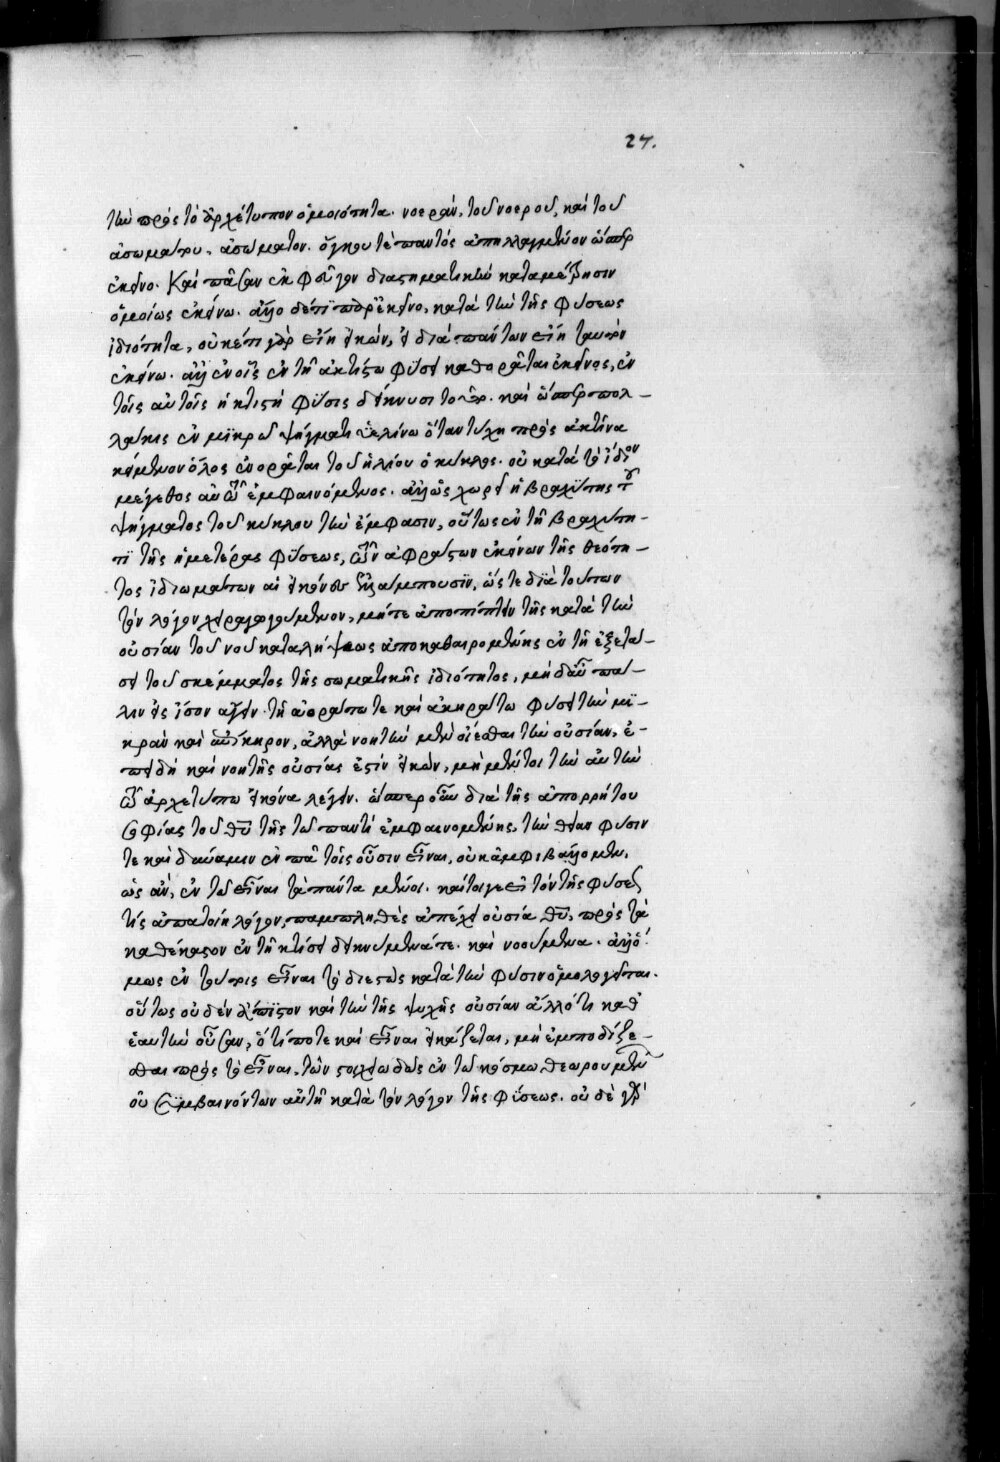 27.
τὴν πρὸς τὸ ἀρχέτυπον ὁμοιότητα. νοερὰν, τοῦ νοεροῦ, καὶ τοῦ
ἀσωμάτου, ἀσώματον. ὄγκου τὲ παντὸς ἀπηλλαγμένον ὥσπερ
ἐκεῖνο. Καὶ πᾶσαν ἐκφεῦγον διαστηματικὴν καταμέτρησιν
ὁμοίως ἐκείνω. ἄλλο δέ τι παρ' ἐκεῖνο, κατὰ τὴν τῆς φύσεως
ἰδιότητα, οὐκέτι γὰρ εἴη εἰκών, εἰ διὰ πάντων εἴη ταυτὸν
ἐκείνω. ἀλλ' ἐν οἷς ἐν τῆ ἀκτίστω φύσει καθορᾶται ἐκεῖνος, ἐν
τοῖς αὐτοῖς ἡ κτιστὴ φύσις δείκνυσι τοῦτο. καὶ ὥσπερ πολ-
λάκις ἐν μικρῶ ψήγματι ὑελίνω ὅταν τύχη πρὸς ἀκτῖνα
κείμενον ὅλος ἐνορᾶται τοῦ ἡλίου ὁ κύκλος. οὐ κατὰ τὸ ἴδιον
μέγεθος αὐτῶ ἐμφαινόμενος. ἀλλ' ὡς χωρεῖ ἡ βραχύτης τοῦ
ψήγματος τοῦ κύκλου τὴν ἔμφασιν, οὕτως ἐν τῆ βραχύτη-
τι τῆς ἡμετέρας φύσεως, τῶν ἀφράστων ἐκείνων τῆς θεότη-
τος ἰδιωμάτων αἱ εἰκόνες ἐκλάμπουσϊν, ὥστε διὰ τούτων
τὸν λόγον χειραγωγούμενον, μήτε ἀποπίπτειν τῆς κατὰ τὴν
οὐσίαν τοῦ νοῦ καταλήψεως ἀποκαθαιρομένης ἐν τῆ ἐξετά-
σει τοῦ σκέμματος τῆς σωματικῆς ἰδιότητος, μηδ' αὖ πά-
λιν εἰς ἴσον ἄγειν τῆ ἀοράτω τε καὶ ἀκηράτω φύσει τὴν μι-
κρὰν καὶ ἐπίκηρον, ἀλλὰ νοητὴν μὲν οἴεσθαι τὴν οὐσίαν, ἐ-
πειδὴ καὶ νοητῆς οὐσίας ἐστὶν εἰκών, μὴ μέντοι τὴν αὐτὴν
τῶ ἀρχετύπω εἰκόνα λέγειν. ὥσπερ οὖν διὰ τῆς ἀπορρήτου
σοφίας τοῦ θῦ τῆς τῶ παντὶ ἐμφαινομένης, τὴν θείαν φύσιν
τε καὶ δύναμιν ἐν πᾶσι τοῖς οὖσιν εἶναι, οὐκ ἀμφιβάλλομεν,
ὡς ἂν, ἐν τῶ εἶναι τὰ πάντα μένοι. καίτοι γε εἰ τὸν τῆς φύσεως
τίς ἀπαιτοίη λόγον, παμπληθὲς ἀπέχει οὐσία θῦ, πρὸς τὰ
καθέκαστον ἐν τῆ κτίσει δεικνύμενά τε. καὶ νοούμενα. ἀλλ' ὅ-
μως ἐν τούτοις εἶναι τὸ διεστὼς κατὰ τὴν φύσιν ὁμολογεῖται.
οὕτως οὐδὲν ἄπιστον καὶ τὴν τῆς ψυχῆς οὐσίαν ἄλλό τι καθ'
ἑαυτὴν οὖσαν, ὅ τί ποτε καὶ εἶναι εἰκάζεται, μὴ ἐμποδίζε-
σθαι πρὸς τὸ εἶναι, τῶν στοιχειωδῶς ἐν τῶ κόσμω θεωρουμένων
οὐ συμβαινόντων αὐτῆ κατὰ τὸν λόγον τῆς φύσεως. οὐδὲ γὰρ